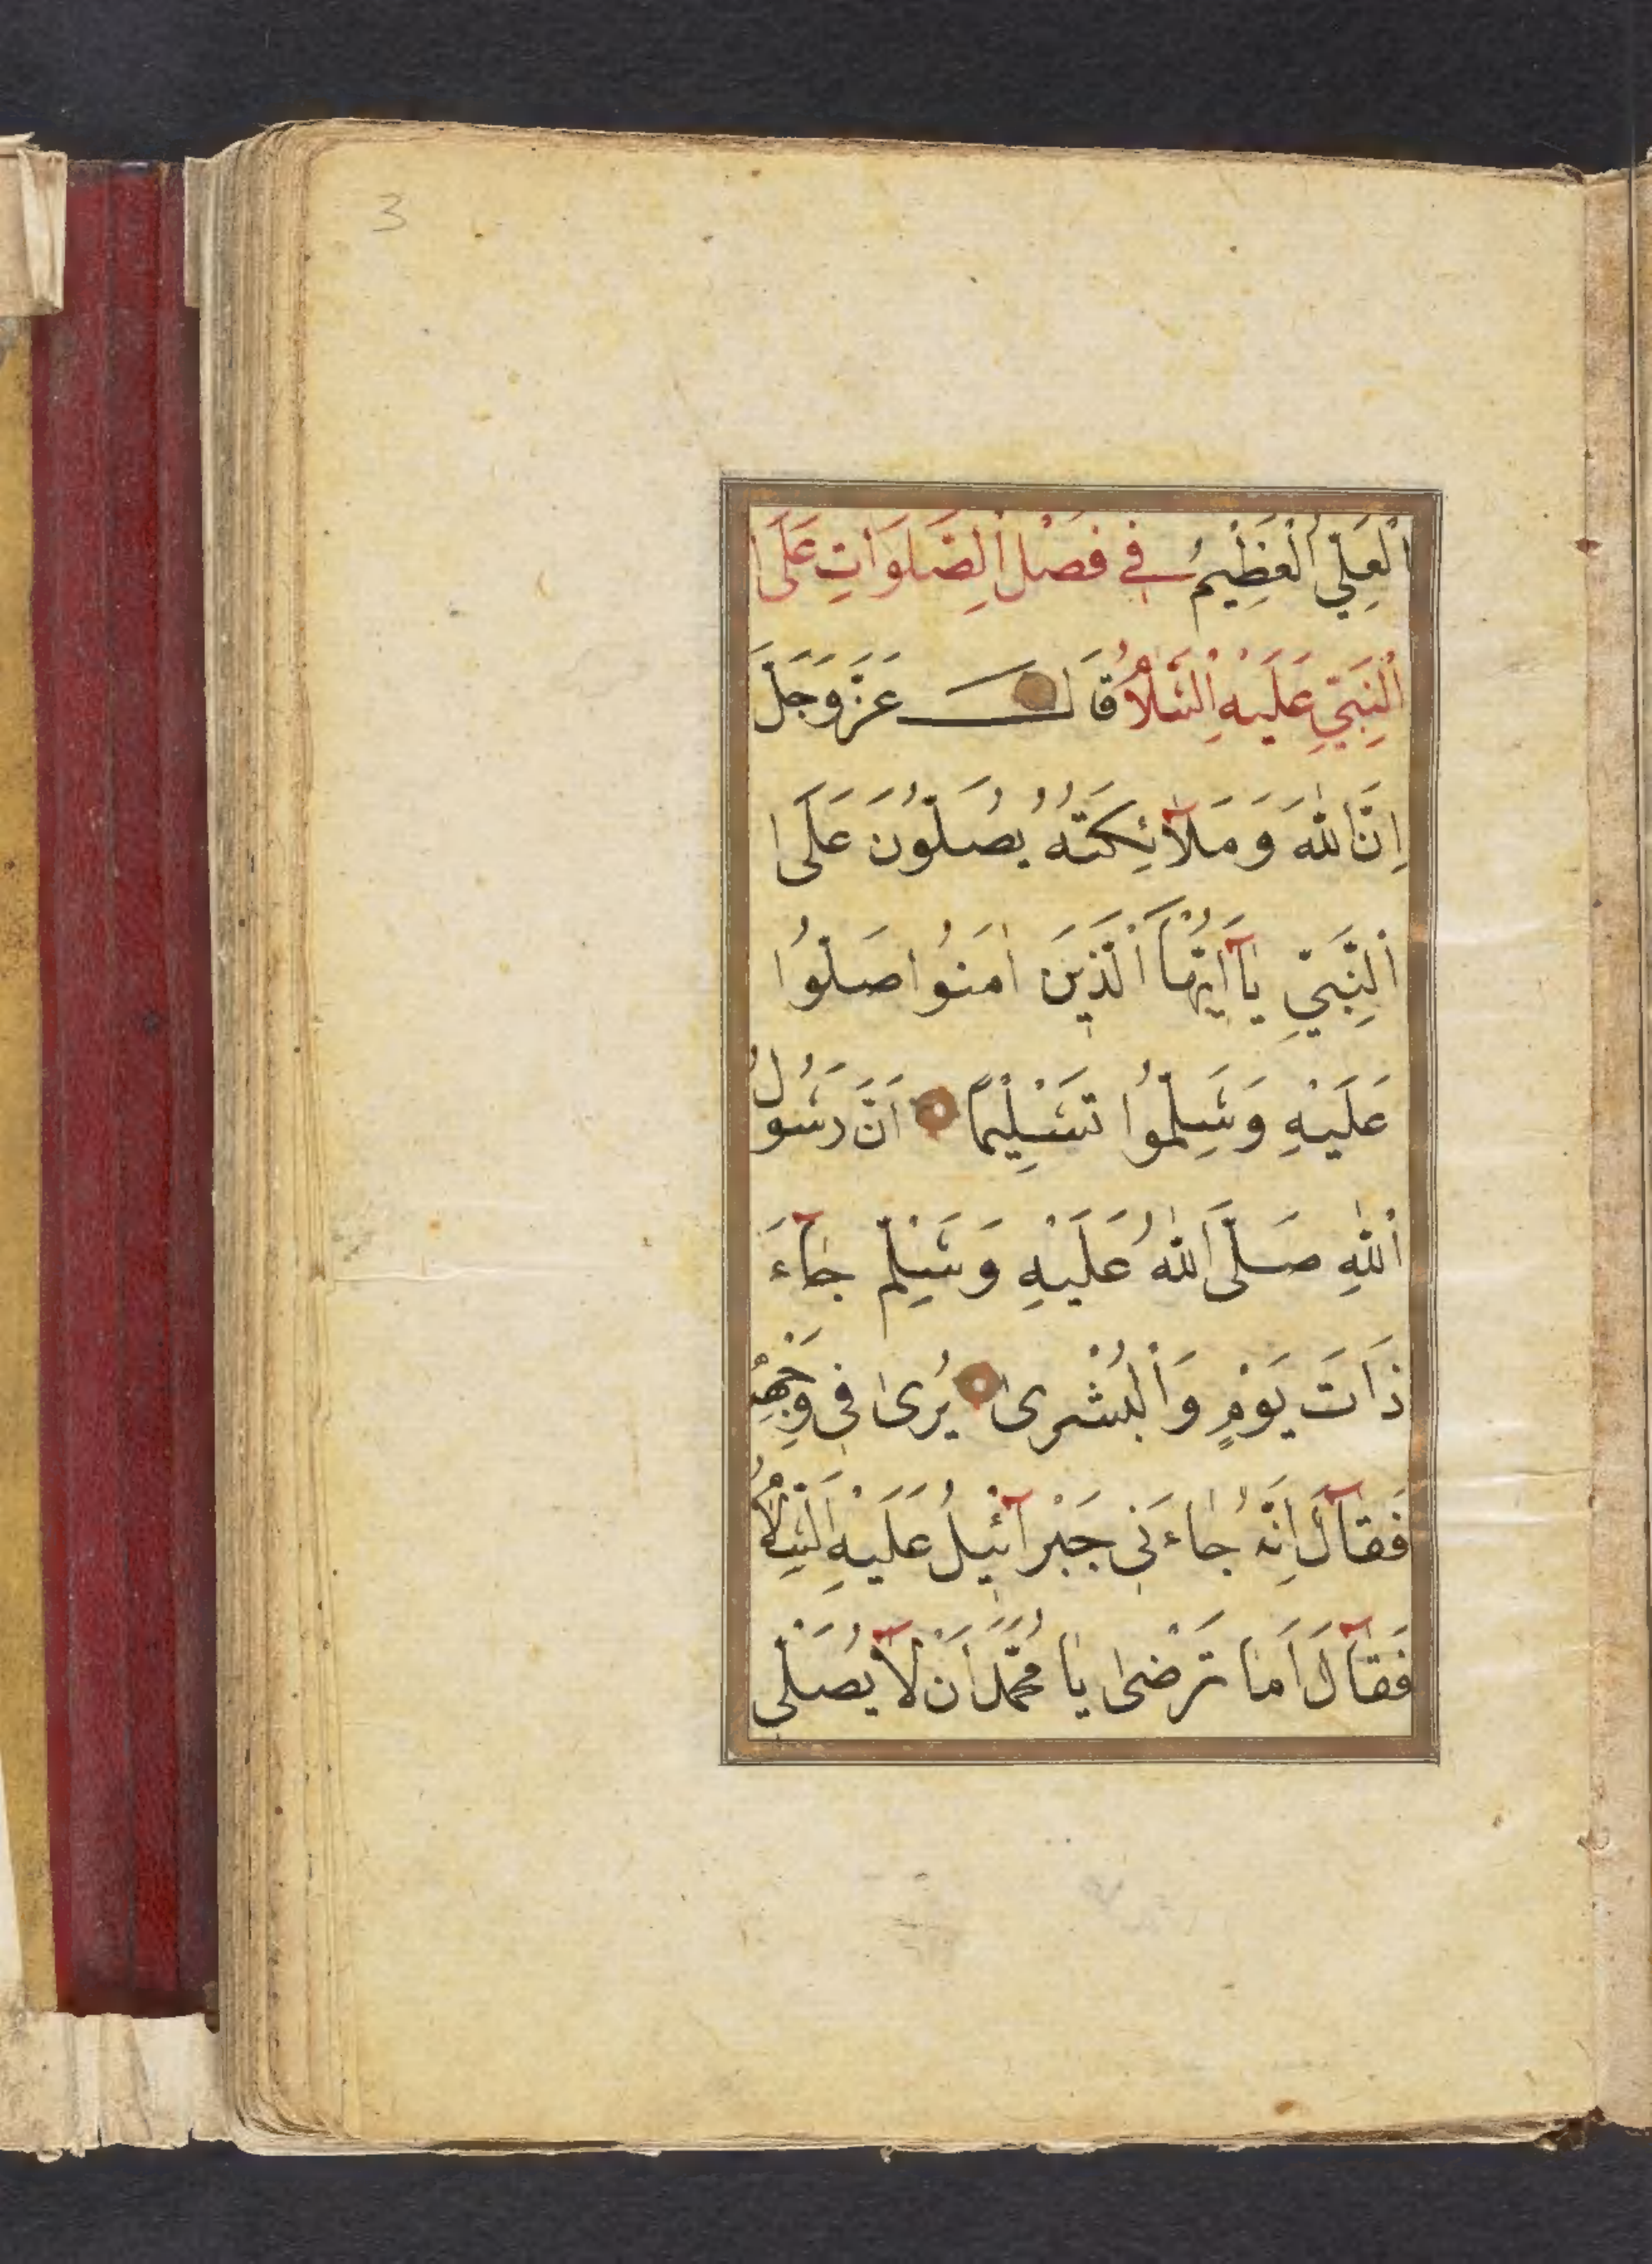 3
اَلْعَلِيِّ الْعَظِيْمُ في فَصْلِ الصَّلَوَاتِ عَلَى
اَلنَّبِيِّ عَلَيْهِ اَلسَّلَامُ قَالَ عَزَّ وَجَلَّ
اِنَّ اللّٰهَ وَمَلَآئِكَتَهُ يُصَلُّونَ عَلَى
اَلنَّبِيِّ يَآ اَيُّهَا اَلَّذِينَ اٰمَنُوا صَلُّوا
عَلَيْهِ وَسَلِّمُوا تَسْلِيْمًا اَنَّ رَسُولُ
اَللّٰهِ صَلَّى اللّٰهُ عَلَيْهِ وَسَلَّمَ جَآءَ
ذَاتَ يَوْمٍ وَاَلْبُشْرٰى يُرٰى فِي وَجْهِهِ
فَقَآلَ اِنَّهُ جَاءَنِي جَبْرَآئِيْلُ عَلَيْهِ اَلسَّلَامُ
فَقَآلَ اَمَا تَرْضٰى يَا مُحَمَّدُ اَنْ لَآ يُصَلِّي